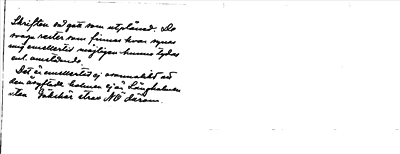 Skriften det går som utplånad. De
svaga rester som finnas kvar synas
mig emellertid möjligen kunna tydas
enl. omstående.
Det är emellertid ej osannolikt att
den åsyftade holmen ej är Långholmen
utan Täckskär strax NO därom.